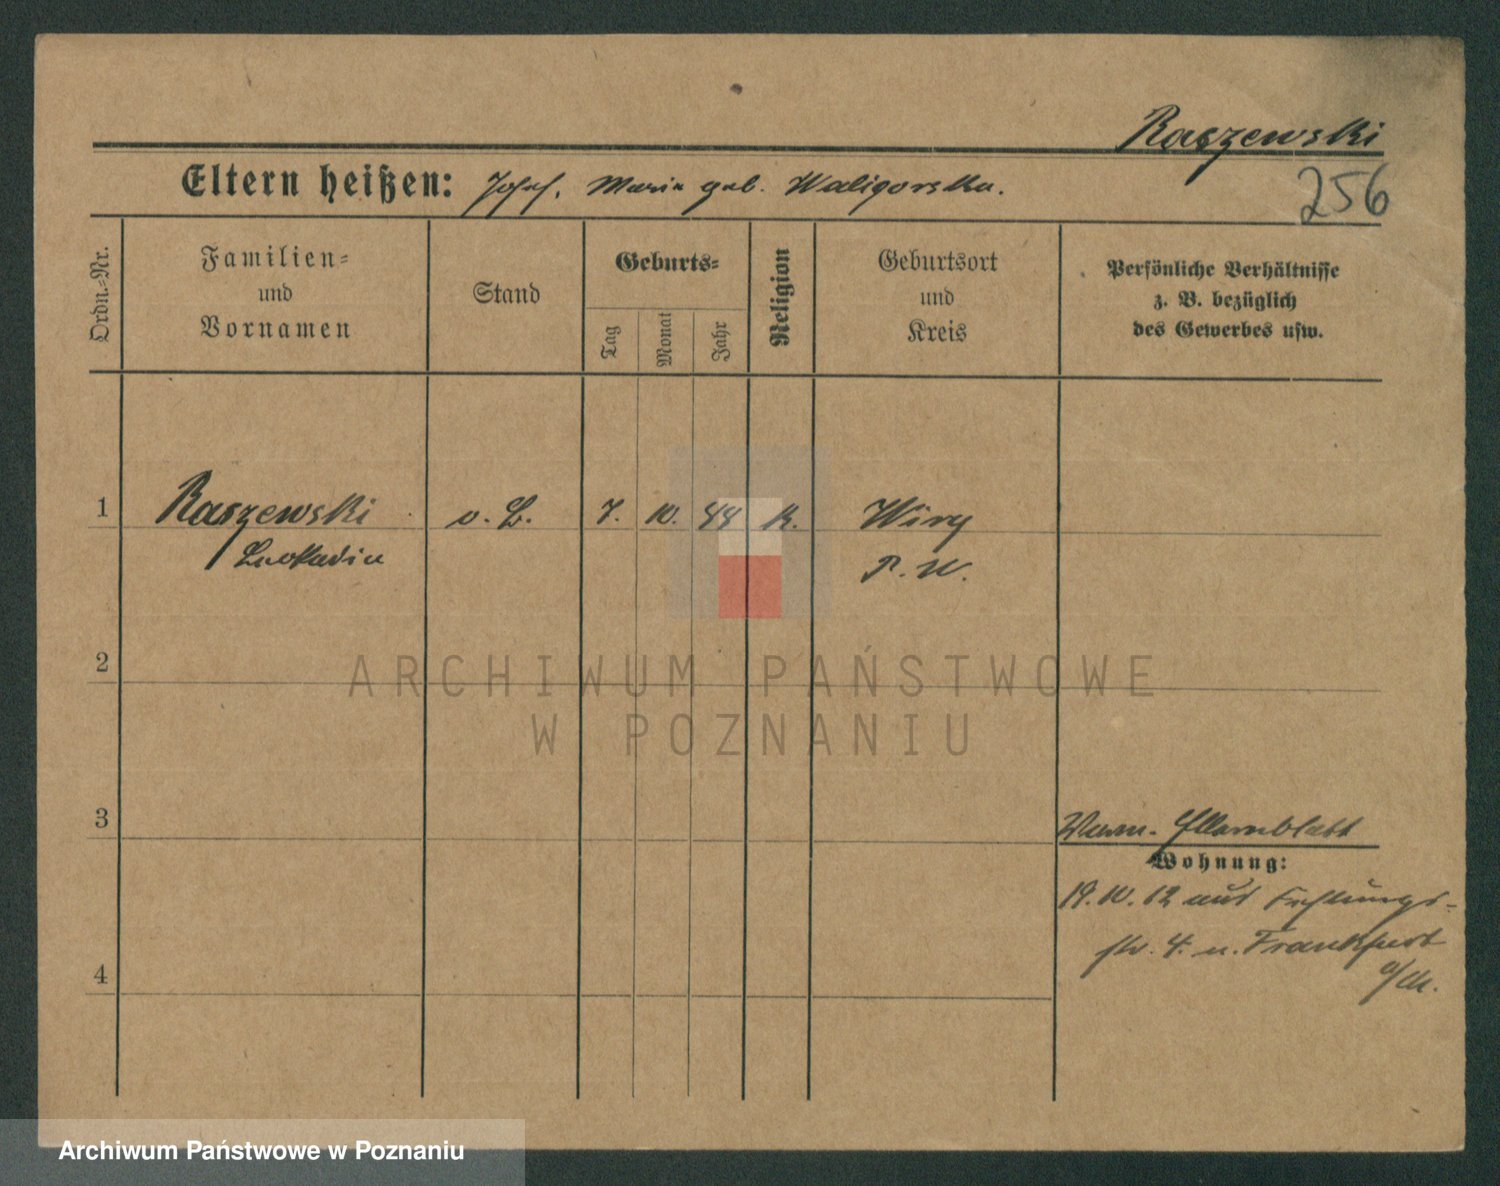 Raszewski
Eltern heißen: Josef, Maria geb. Waligorska.
256
Ordn.-Nr.
Familien-
und
Vornamen
Stand
Geburts-
Tag
Monat
Jahr
Religion
Geburtsort
und
Kreis
Persönliche Verhältnisse
z. B. bezüglich
des Gewerbes usw.
1
Raszewski
Leokadia
o. B.
7. 10. 44
K.
Wiry
P. W.
2
ARCHIWUM PAŃSTWOWE
W POZNANIU
3
Elternblatt
Wohnung:
19.10.12 aus
str. 4. n. Frankfurt
a/M.
4
Archiwum Państwowe w Poznaniu